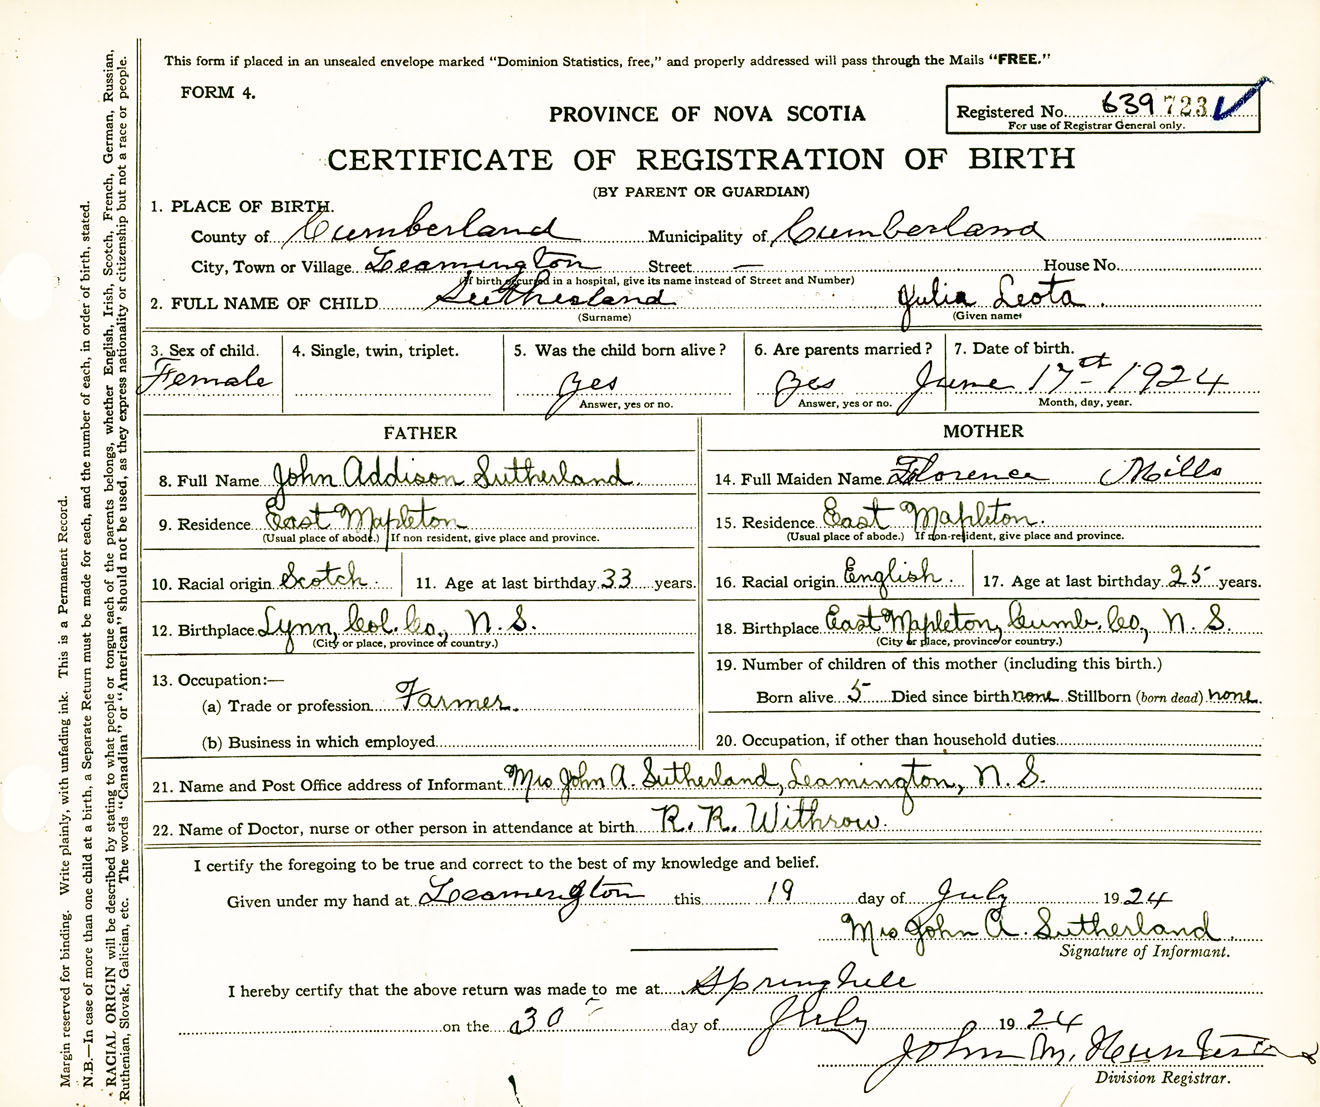 This form if placed in an unsealed envelope marked "Dominion Statistics, free," and properly addressed will pass through the Mails "FREE."
FORM 4.
PROVINCE OF NOVA SCOTIA
Registered No. 639 723
For use of Registrar General only.
CERTIFICATE OF REGISTRATION OF BIRTH
(BY PARENT OR GUARDIAN)
1. PLACE OF BIRTH.
County of Cumberland Municipality of Cumberland
City, Town or Village Leamington Street — House No.
(If birth occurred in a hospital, give its name instead of Street and Number)
2. FULL NAME OF CHILD Sutherland Julia Leota.
(Surname) (Given name)
3. Sex of child. 4. Single, twin, triplet. 5. Was the child born alive? 6. Are parents married? 7. Date of birth.
Female yes yes June 17th 1924
Answer, yes or no. Answer, yes or no. Month, day, year.
FATHER MOTHER
8. Full Name John Addison Sutherland. 14. Full Maiden Name Florence Mills
9. Residence East Mapleton 15. Residence East Mapleton.
(Usual place of abode.) If non resident, give place and province. (Usual place of abode.) If non-resident, give place and province.
10. Racial origin Scotch. 11. Age at last birthday 33 years. 16. Racial origin English. 17. Age at last birthday 25 years.
12. Birthplace Lynn, Col. Co., N. S. 18. Birthplace East Mapleton, Cumb. Co., N. S.
(City or place, province or country.) (City or place, province or country.)
19. Number of children of this mother (including this birth.)
13. Occupation:—
(a) Trade or profession Farmer. Born alive 5 Died since birth none Stillborn (born dead) none.
(b) Business in which employed 20. Occupation, if other than household duties
21. Name and Post Office address of Informant Mrs John A. Sutherland, Leamington, N. S.
22. Name of Doctor, nurse or other person in attendance at birth R. R. Withrow.
I certify the foregoing to be true and correct to the best of my knowledge and belief.
Given under my hand at Leamington this 19 day of July 1924
Mrs John A. Sutherland.
Signature of Informant.
I hereby certify that the above return was made to me at Springhill
on the 30 day of July 1924
John M. Hunter
Division Registrar.
Margin reserved for binding. Write plainly, with unfading ink. This is a Permanent Record.
N.B.—In case of more than one child at a birth, a Separate Return must be made for each, and the number of each, in order of birth, stated.
RACIAL ORIGIN will be described by stating to what people or tongue each of the parents belongs, whether English, Irish, Scotch, French, German, Russian,
Ruthenian, Slovak, Galician, etc. The words "Canadian" or "American" should not be used, as they express nationality or citizenship but not a race or people.